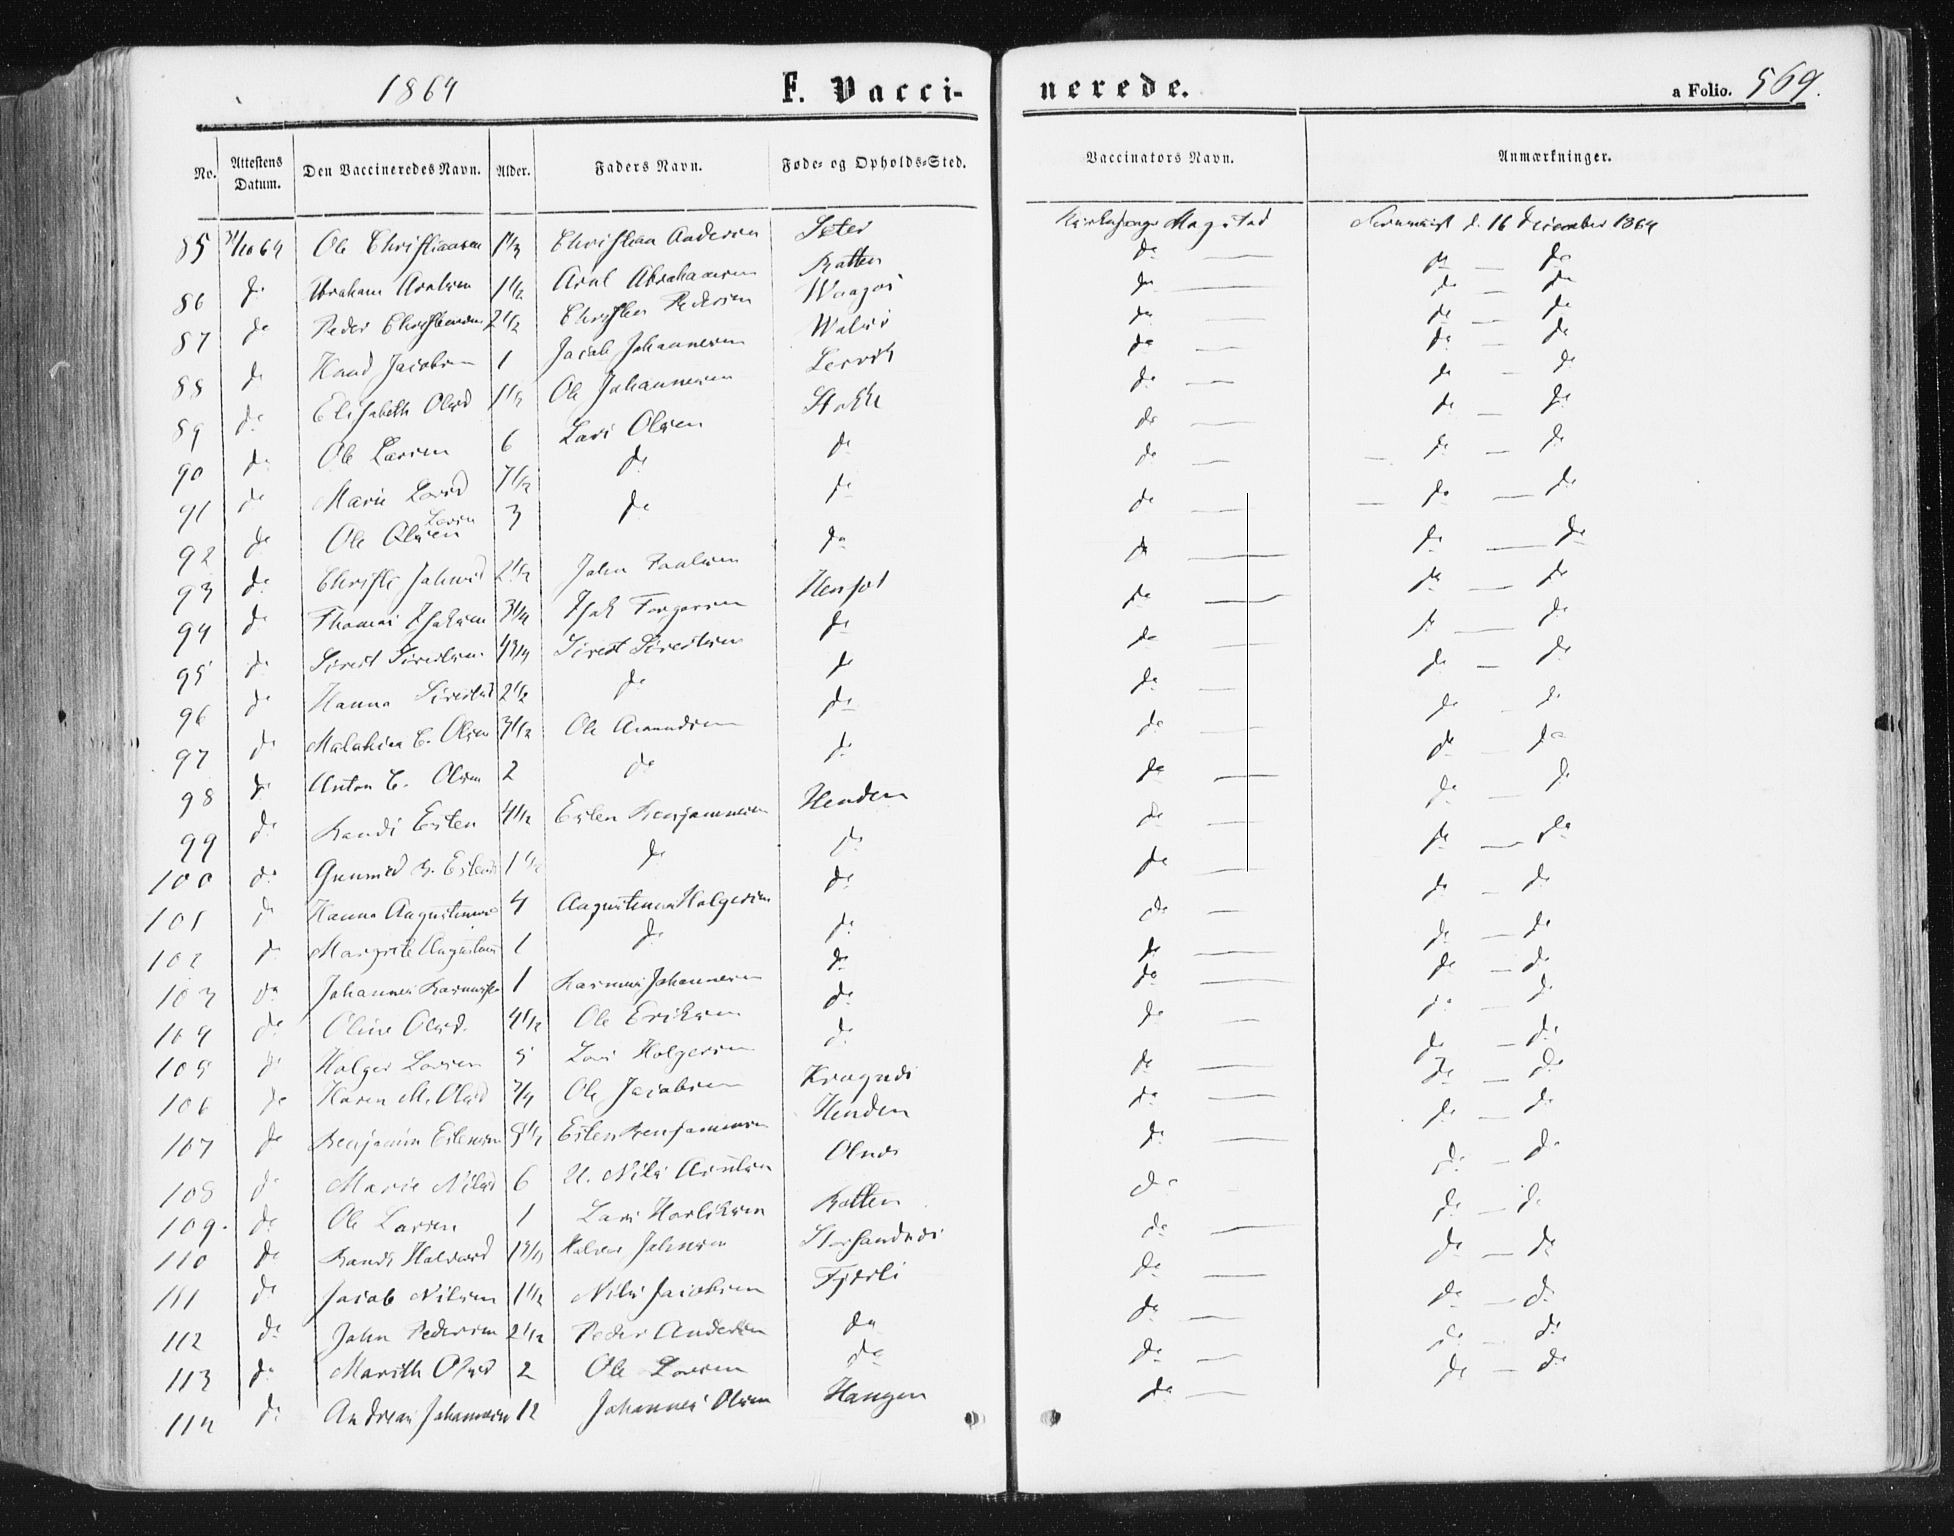 1864 F. Vacci-nerede. a Folio. 569.
No. Attestens Datum. Den Vaccineredes Navn. Alder. Faders Navn. Føde- og Opholds-Sted. Vaccinators Navn. Anmærkninger.
85 31/10 64 Ole Christiansen 1 1/3 Christian Andersen Seter Kirkesanger Magstad d. 16 December 1864
86 do Abraham Arntsen 1 1/2 Arnt Abrahamsen Ratten do — do — do
87 do Peder Christensen 2 1/2 Christen Pedersen do — do — do
88 do Jacobsen 1 Jacob Johannesen do — do — do
89 do Elisabeth Olsd 1 1/3 Ole Johannesen Lervik do — do — do
90 do Ole Larsen 6 Lars Olsen Stokke do — do — do
91 do Marie Larsd 7 1/2 do do do — do — do
92 do Ole Olsen Larsen 3 do do do — do — do
93 do Johnsd 2 1/2 John Paulsen do do — do — do
94 do Thomas Isaksen 3 1/4 Isak do — do — do
95 do Sivert Sivertsen 4 3/4 Sivert Sivertsen do do — do — do
96 do Hanna Sivertsd 2 1/2 do do do — do — do
97 do C. Olsen 3 1/2 Ole Amundsen do do — do — do
98 do Anton C. Olsen 2 do do do — do — do
99 do Randi Esten 4 1/2 Esten Benjaminsen Henden do — do — do
100 do Gunnild B. Estensd 1 1/2 do do do — do — do
101 do Hanna Augustinusd 4 Augustinus Holgersen do do — do — do
102 do Margrete Augustinusd 1 do do do — do — do
103 do Johannes Rasmussen 1 Rasmus Johannesen do do — do — do
104 do Oline Olsd. 4 1/2 Ole Eriksen do do — do — do
105 do Holger Larsen 5 Lars Holgersen do do — do — do
106 do Karen M. Olsd 3/4 Ole Jacobsen do — do — do
107 do Benjamin Estensen 8 1/2 Esten Benjaminsen Henden do — do — do
108 do Marie Nilsd 6 U. Nils Arntsen Olnes do — do — do
109. do Ole Larsen 1 Lars Ratten do — do — do
110 do Randi Halvorsd 1 3/4 Halvor Johnsen do — do — do
111 do Jacob Nilsen 1 1/2 Nils Jacobsen Fjerli do — do — do
112 do John Pedersen 2 1/2 Peder Andersen do do — do — do
113 do Marith Olsd 2 Ole Larsen do do — do — do
114 do Andreas Johannesen 12 Johannes Olsen Haugen do —